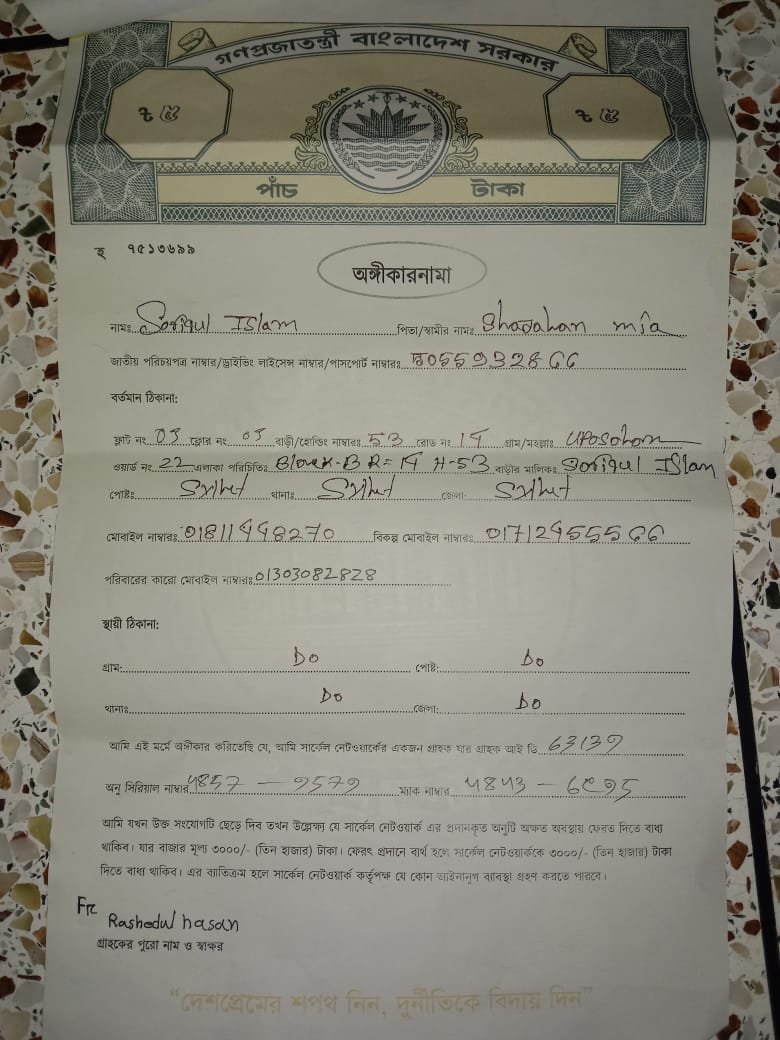 গণপ্রজাতন্ত্রী বাংলাদেশ সরকার
৳ ৫ ৳ ৫
পাঁচ টাকা
হ ৭৫১৩৬৯৯
অঙ্গীকারনামা
নামঃ Soriqul Islam পিতা/স্বামীর নামঃ Shajahan mia
জাতীয় পরিচয়পত্র নাম্বার/ড্রাইভিং লাইসেন্স নাম্বার/পাসপোর্ট নাম্বারঃ
বর্তমান ঠিকানা:
ফ্লাট নং 03 ফ্লোর নং 03 বাড়ী/হোল্ডিং নাম্বারঃ 53 রোড নং 14 গ্রাম/মহল্লাঃ Uposohom
ওয়ার্ড নং 22 এলাকা পরিচিতিঃ Block-B R=14 H-53 বাড়ীর মালিকঃ Soriqul Islam
পোষ্টঃ Sylhet থানাঃ Sylhet জেলা: Sylhet
মোবাইল নাম্বারঃ 01811448270 বিকল্প মোবাইল নাম্বারঃ 01712455566
পরিবারের কারো মোবাইল নাম্বারঃ 01303082828
স্থায়ী ঠিকানা:
গ্রাম: Do পোষ্ট: Do
থানাঃ Do জেলা: Do
আমি এই মর্মে অঙ্গীকার করিতেছি যে, আমি সার্কেল নেটওয়ার্কের একজন গ্রাহক যার গ্রাহক আই ডি 63139
অনু সিরিয়াল নাম্বার ম্যাক নাম্বার
আমি যখন উক্ত সংযোগটি ছেড়ে দিব তখন উল্লেক্ষ্য যে সার্কেল নেটওয়ার্ক এর প্রদানকৃত অনুটি অক্ষত অবস্থায় ফেরত দিতে বাধ্য
থাকিব। যার বাজার মূল্য ৩০০০/- (তিন হাজার) টাকা। ফেরৎ প্রদানে ব্যর্থ হলে সার্কেল নেটওয়ার্ককে ৩০০০/- (তিন হাজার) টাকা
দিতে বাধ্য থাকিব। এর ব্যতিক্রম হলে সার্কেল নেটওয়ার্ক কর্তৃপক্ষ যে কোন আইনানুগ ব্যবস্থা গ্রহণ করতে পারবে।
Rashedul hasan
গ্রাহকের পুরো নাম ও স্বাক্ষর
“দেশপ্রেমের শপথ নিন, দুর্নীতিকে বিদায় দিন”